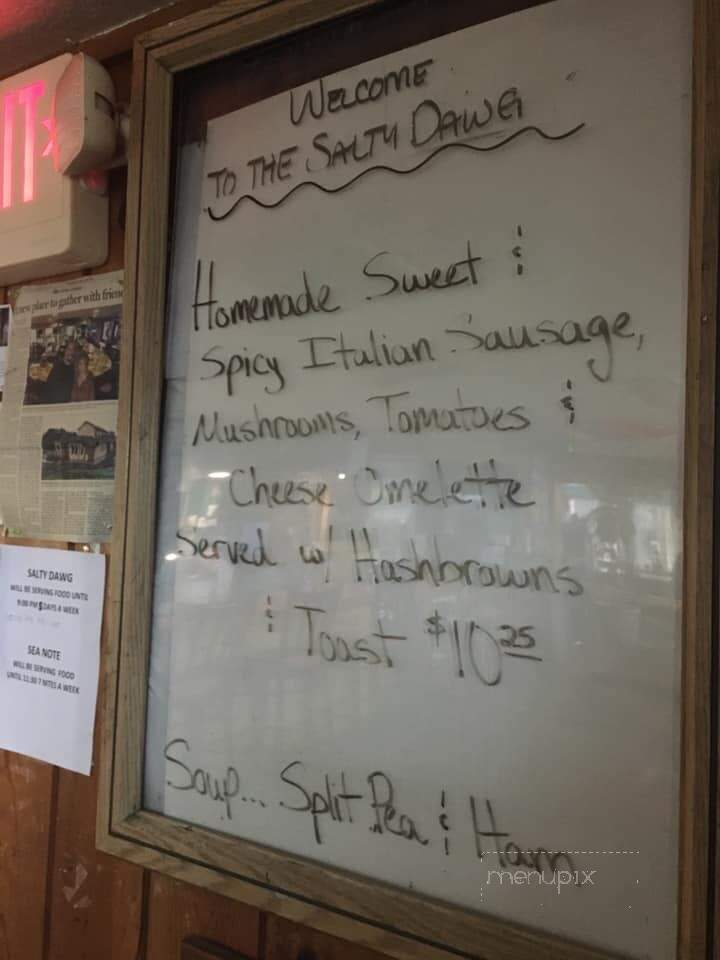 WELCOME
TO THE SALTY DAWG
Homemade Sweet &
Spicy Italian Sausage,
Mushrooms, Tomatoes &
Cheese Omelette
Served w/ Hashbrowns
& Toast $10.25
Soup... Split Pea & Ham
menupix
IT
new place to gather with friends
SALTY DAWG
WILL BE SERVING FOOD UNTIL
9:00 PM 5 DAYS A WEEK
SEA NOTE
WILL BE SERVING FOOD
UNTIL 11:30 7 NITES A WEEK